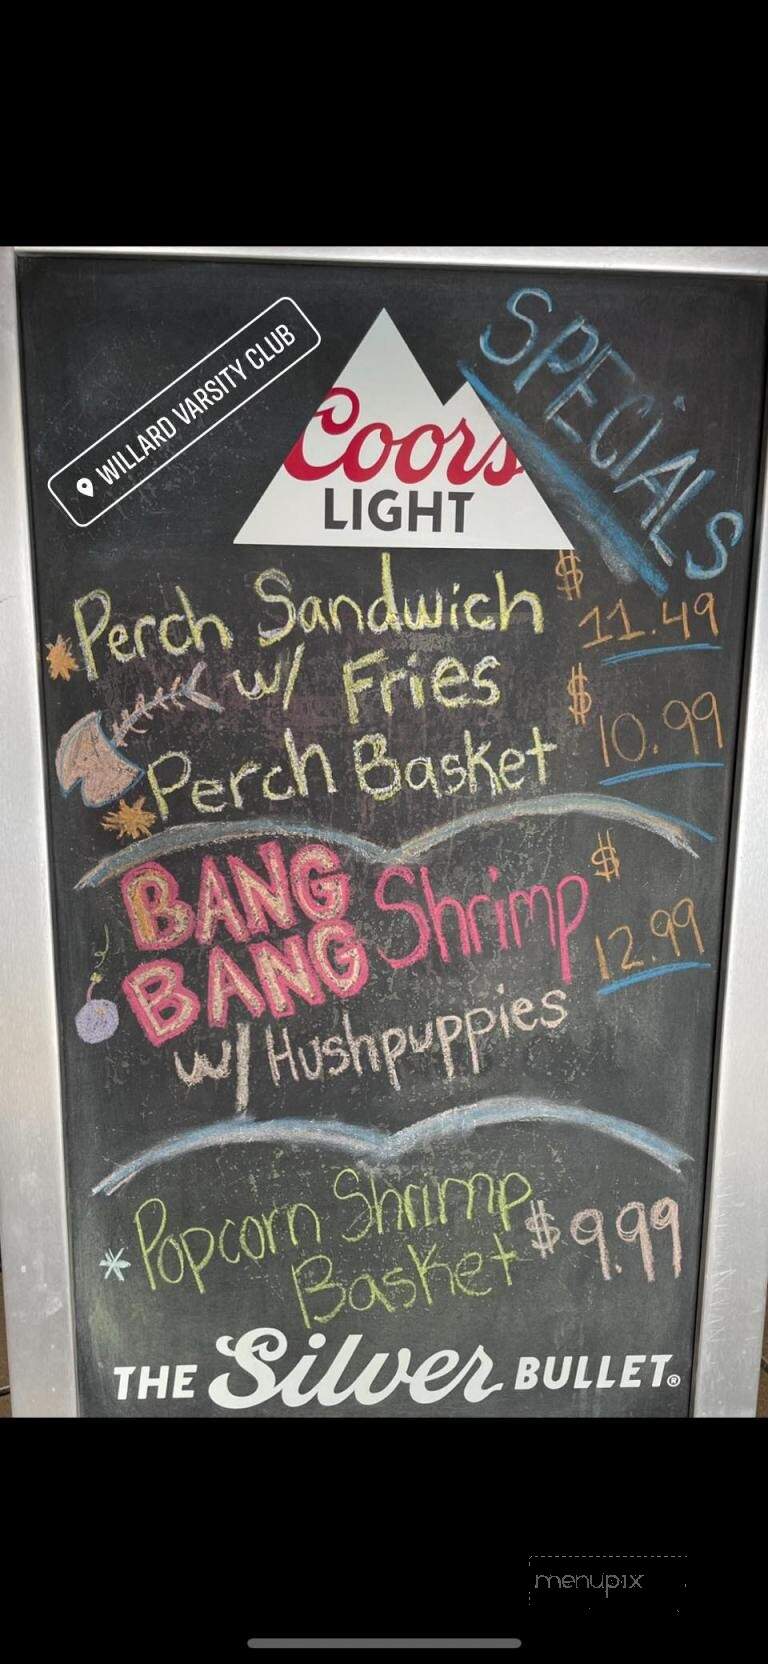 WILLARD VARSITY CLUB
SPECIALS
Coors
LIGHT
Perch Sandwich $11.49
w/ Fries
Perch Basket $10.99
BANG
BANG Shrimp $12.99
w/ Hushpuppies
Popcorn Shrimp
Basket $9.99
THE Silver BULLET®
menupix